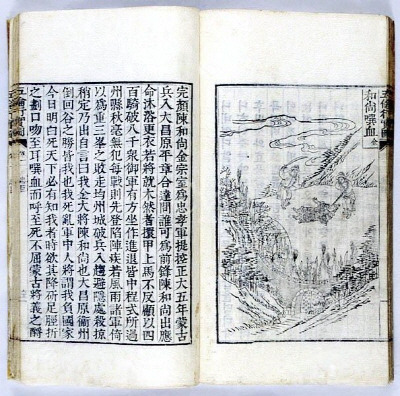 和尙噀血 金
完顏陳和尙金宗室爲忠孝軍提控正大五年蒙古
兵入大昌原平章合達問誰可爲前鋒陳和尙出應
命沐浴更衣若將就木然者擐甲上馬不反顧以四
百騎破八千衆御軍有方坐作進退皆中程式所過
州縣秋毫無犯每戰則先登陷陣疾若風雨諸軍倚
以爲重三峯之敗走均州城破兵入趨避隱處殺掠
稍定乃出自言曰我金大將陳和尙也大昌原衛州
倒回谷之勝皆我也我死亂軍中人將謂我負國家
今日明白死天下必有知我者時欲其降斫足脛折
之劃口吻至耳噀血而呼至死不屈蒙古將義之酹
五倫行實圖